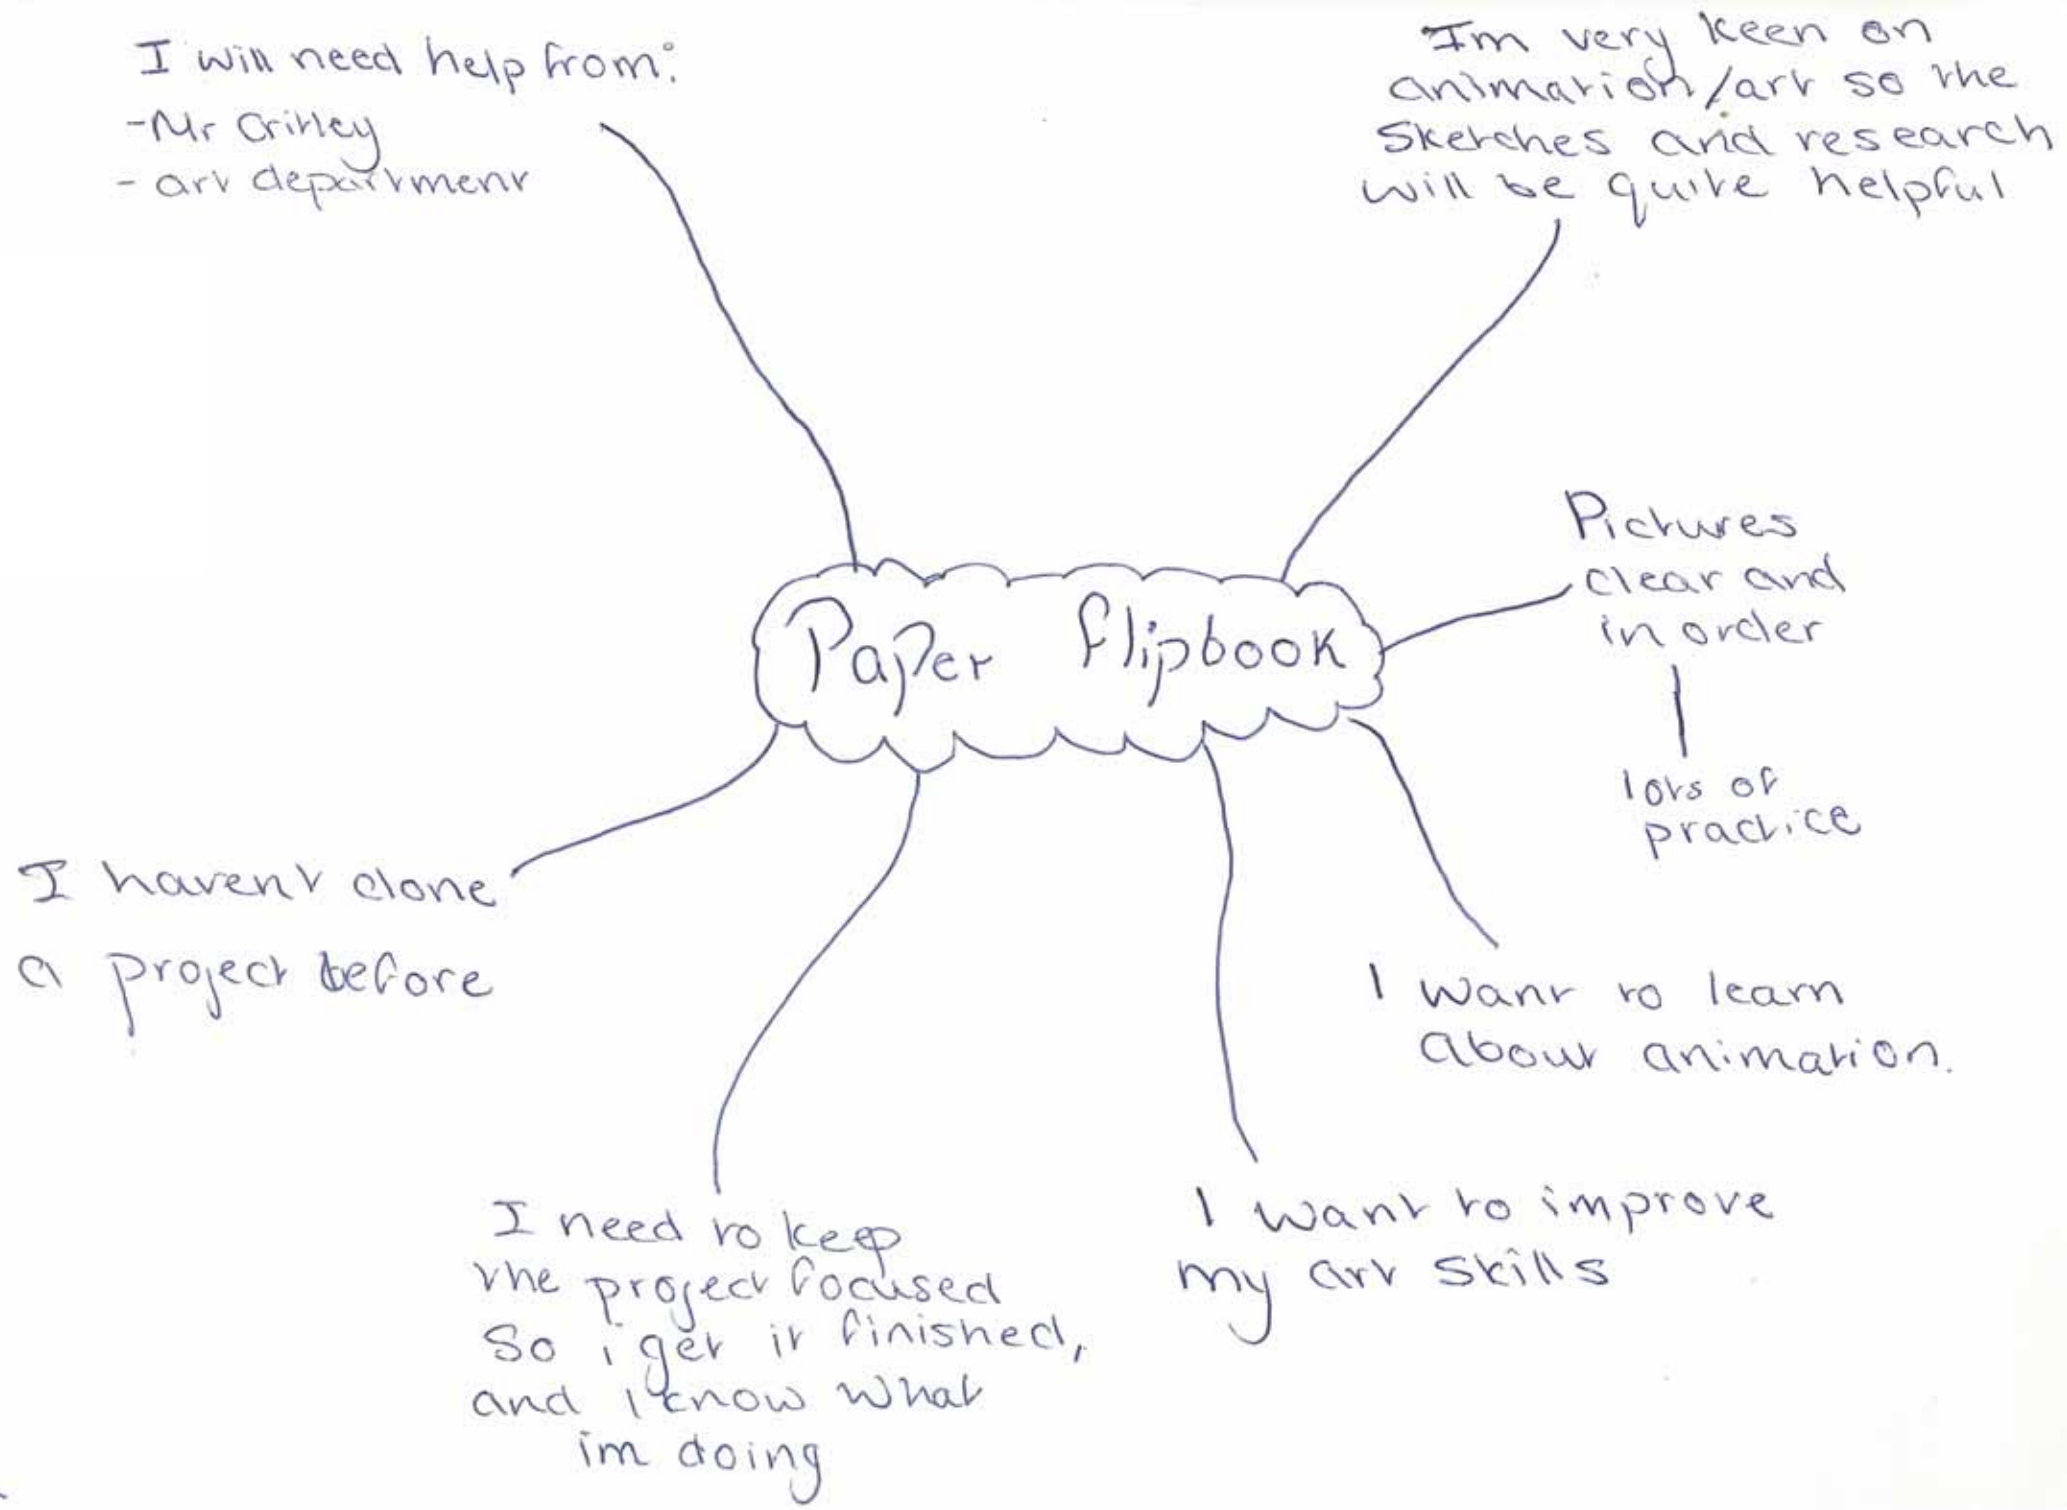 I will need help from:
-Mr Critley
- art department
Im very keen on
animation/art so the
sketches and research
will be quite helpful
Pictures
clear and
in order
lots of
practice
Paper flipbook
I havent done
a project before
I want to learn
about animation.
I need to keep
the project focused
so i get it finished,
and I know what
im doing
I want to improve
my art skills